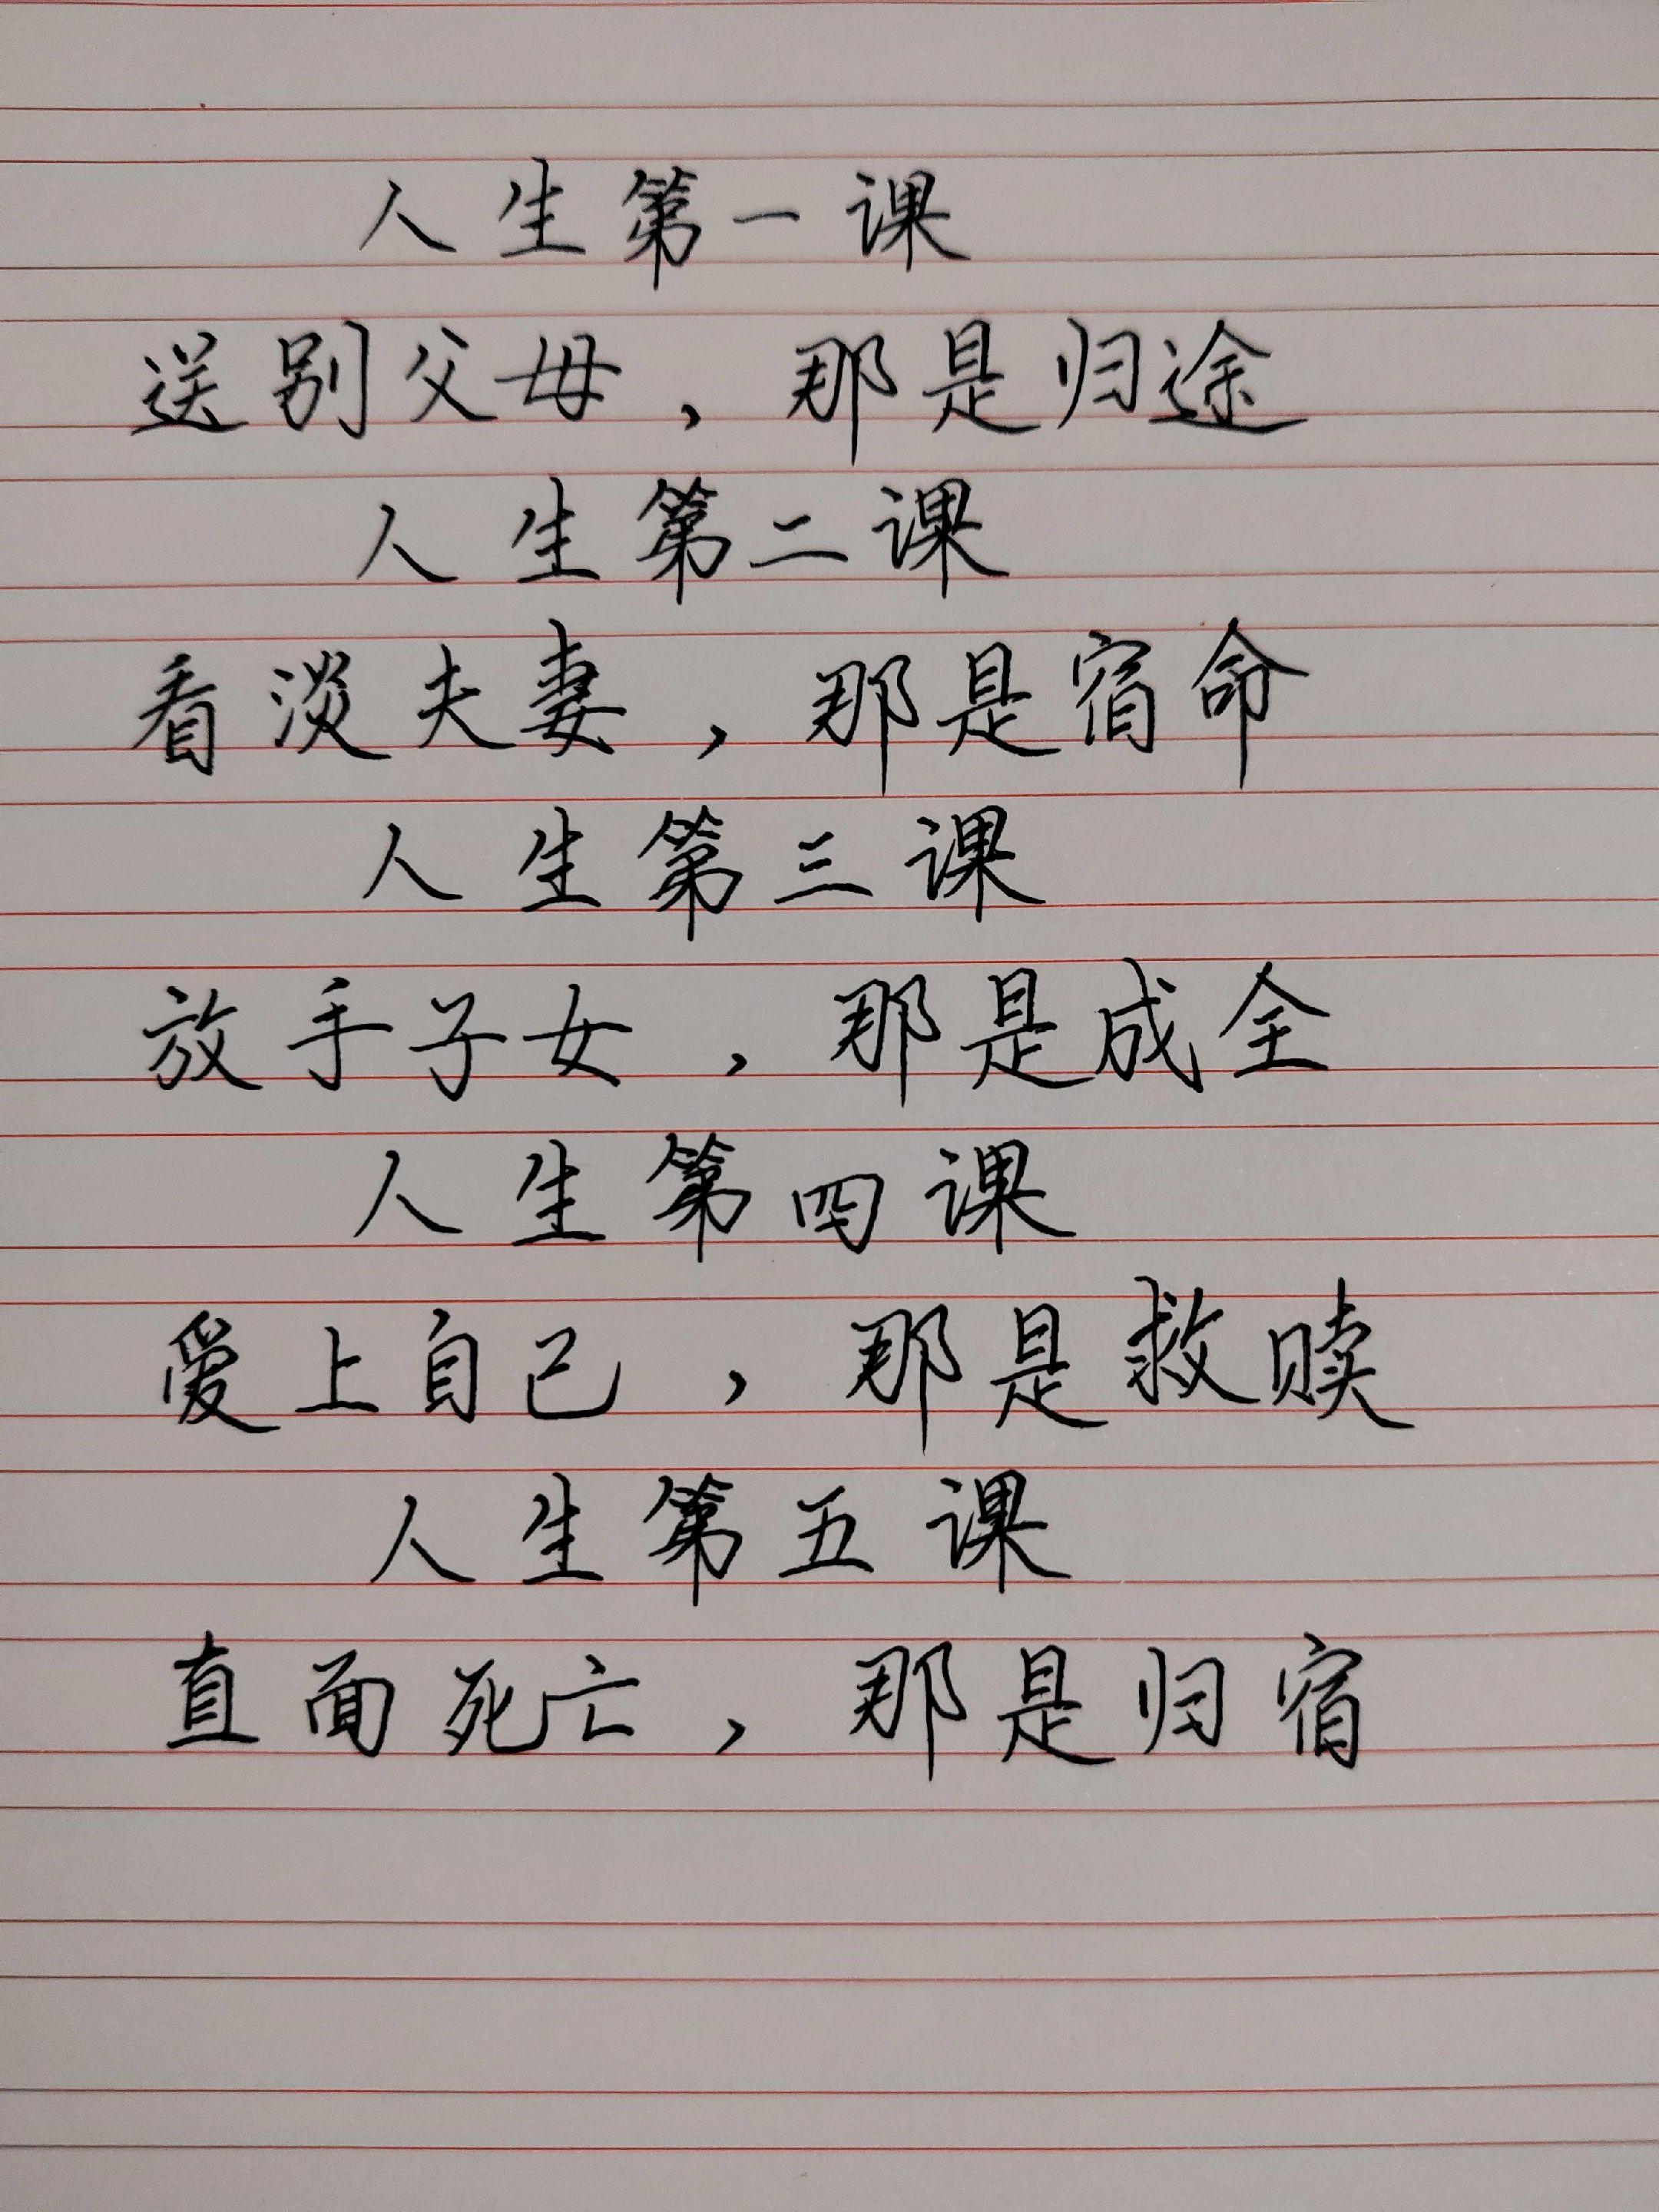 人生第一课
送别父母，那是归途
人生第二课
看淡夫妻，那是宿命
人生第三课
放手子女，那是成全
人生第四课
爱上自己，那是救赎
人生第五课
直面死亡，那是归宿